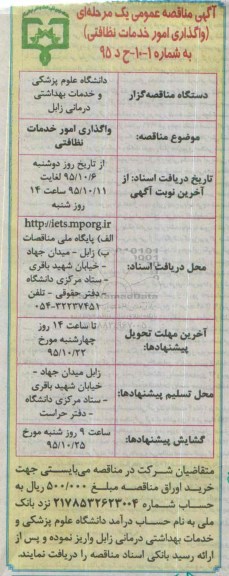 آگهی مناقصه عمومی یک مرحله‌ای
(واگذاری امور خدمات نظافتی)
به شماره ۱-۱۰-ح د ۹۵
دستگاه مناقصه‌گزار
دانشگاه علوم پزشکی
و خدمات بهداشتی
درمانی زابل
موضوع مناقصه:
واگذاری امور خدمات
نظافتی
تاریخ دریافت اسناد: از
آخرین نوبت آگهی
از تاریخ روز دوشنبه
۹۵/۱۰/۶ لغایت
۹۵/۱۰/۱۱ ساعت ۱۴
روز شنبه
محل دریافت اسناد:
http://iets.mporg.ir
الف) پایگاه ملی مناقصات
ب) زابل - میدان جهاد
- خیابان شهید باقری
- ستاد مرکزی دانشگاه
- دفتر حقوقی - تلفن
۰۵۴-۳۲۲۳۷۴۵۱
آخرین مهلت تحویل
پیشنهادها:
تا ساعت ۱۴ روز
چهارشنبه مورخ
۹۵/۱۰/۲۲
محل تسلیم پیشنهادها:
زابل میدان جهاد -
خیابان شهید باقری
- ستاد مرکزی دانشگاه
- دفتر حراست
گشایش پیشنهادها:
ساعت ۹ روز شنبه مورخ
۹۵/۱۰/۲۵
متقاضیان شرکت در مناقصه می‌بایستی جهت
خرید اوراق مناقصه مبلغ ۵۰۰/۰۰۰ ریال به
حساب شماره ۲۱۷۸۵۳۲۶۲۳۰۰۴ نزد بانک
ملی به نام حساب درآمد دانشگاه علوم پزشکی و
خدمات بهداشتی درمانی زابل واریز نموده و پس از
ارائه رسید بانکی اسناد مناقصه را دریافت نمایند.